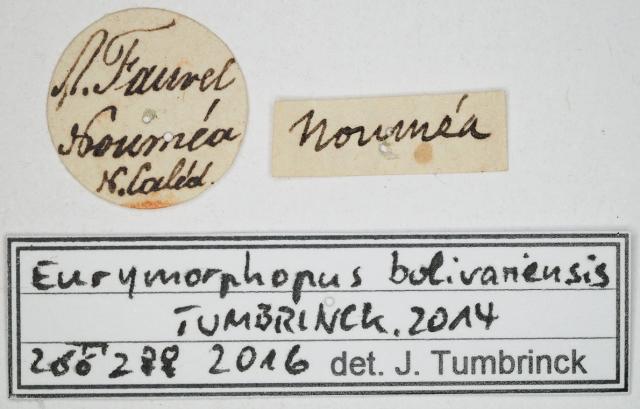 Fauvel
Nouméa
N. Caléd.
Nouméa
Eurymorphopus bolivariensis
TUMBRINCK, 2014
2016 det. J. Tumbrinck